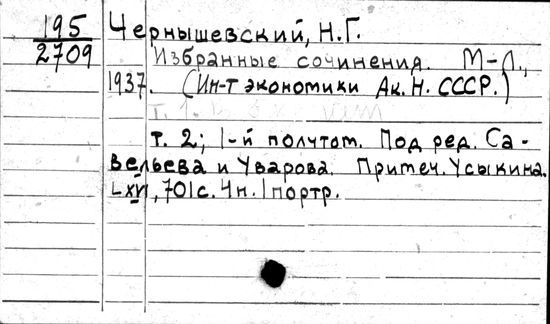 195
2709
Чернышевский, Н.Г.
Избранные сочинения. М-Л.,
1937. (Ин-т экономики Ак. Н. СССР.)
т. 2; 1-й полутом. Под ред. Са-
вельева и Уварова. Примеч. Усыкина.
LXVI, 701с. Чн. 1 портр.